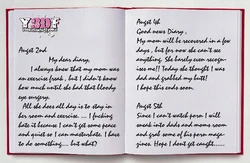 Y3DF
Augst 2nd
My dear diary,
I always knew that my mom was
an exercise freak , but I didn't know
how much until she had that bloody
eye surgery.
All she does all day is to stay in
her room and exercise. ... I fucking
hate it because I can't get some peace
and quiet so I can masturbate. I have
to do something... but what?
Augst 4th
Good news Diary ,
My mom will be recovered in a few
days , but for now she can't see
anything. She barely even recogn-
ises me!! Today she thought I was
dad and grabbed my butt!
I hope this ends soon.
Augst 5th
Since I can't watch porn I will
sneak into dads and moms room
and grab some of his porn maga-
zines. Hope I dont get caught.....